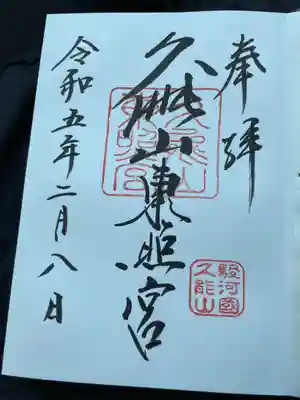 奉拝
久能山東照宮
令和五年二月八日
久能山
東照宮
駿河國
久能山